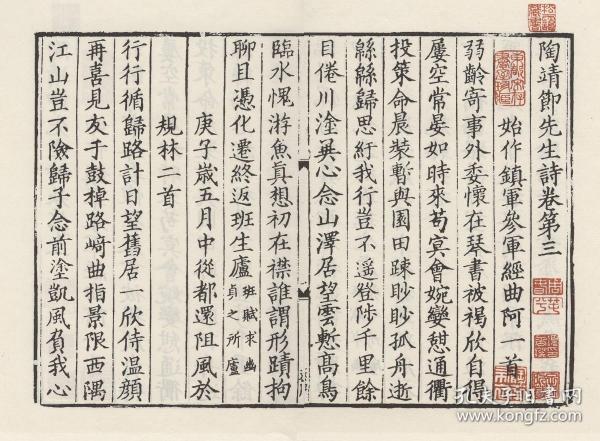 陶靖節先生詩卷第三
始作鎮軍參軍經曲阿一首
弱齡寄事外委懷在琴書被褐欣自得
屢空常晏如時來茍冥會婉孌憇通衢
投策命晨裝暫與園田踈眇眇孤舟逝
緜緜歸思紆我行豈不遥登陟千里餘
目倦川塗異心念山澤居望雲慙高鳥
臨水愧游魚真想初在襟誰謂形蹟拘
聊且憑化遷終返班生廬班賦求幽
貞之所廬
庚子歲五月中從都還阻風於
規林二首
行行循歸路計日望舊居一欣侍温顔
再喜見友于鼓棹路崎曲指景限西隅
江山豈不險歸子念前塗凱風負我心
孔夫子旧书网
www.kongfz.com